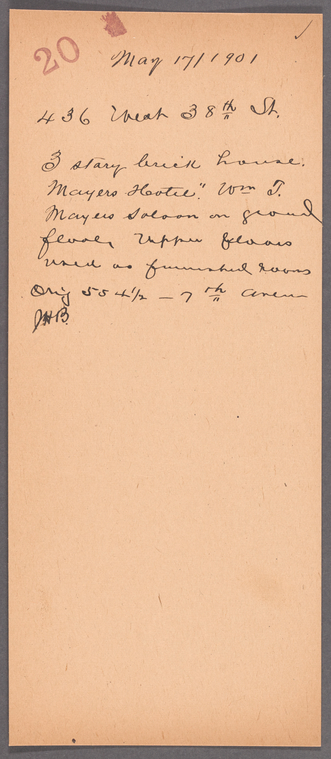 20
May 17/1901
436 West 38th St.
3 story brick house.
Mayers Hotel". Wm T.
Mayers Saloon on ground
floor, Upper floors
used as furnished rooms
Orig 554½ – 7th avenue
JHB.